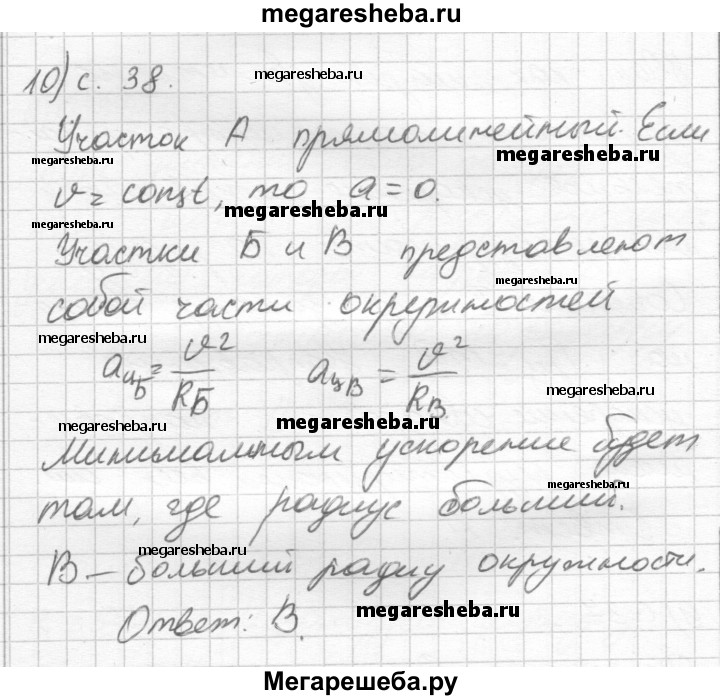 megaresheba.ru
10) с. 38.
megaresheba.ru
Участок А прямолинейный. Если
megaresheba.ru
megaresheba.ru
v = const, то a = 0.
megaresheba.ru
megaresheba.ru
Участки Б и В представляют
megaresheba.ru
собой части окружностей
megaresheba.ru
aцБ = v²/RБ aцВ = v²/RВ
megaresheba.ru
megaresheba.ru
megaresheba.ru
Минимальным ускорение будет
megaresheba.ru
там, где радиус больший.
megaresheba.ru
В – больший радиу окружности.
megaresheba.ru
Ответ: В.
Мегарешеба.ру